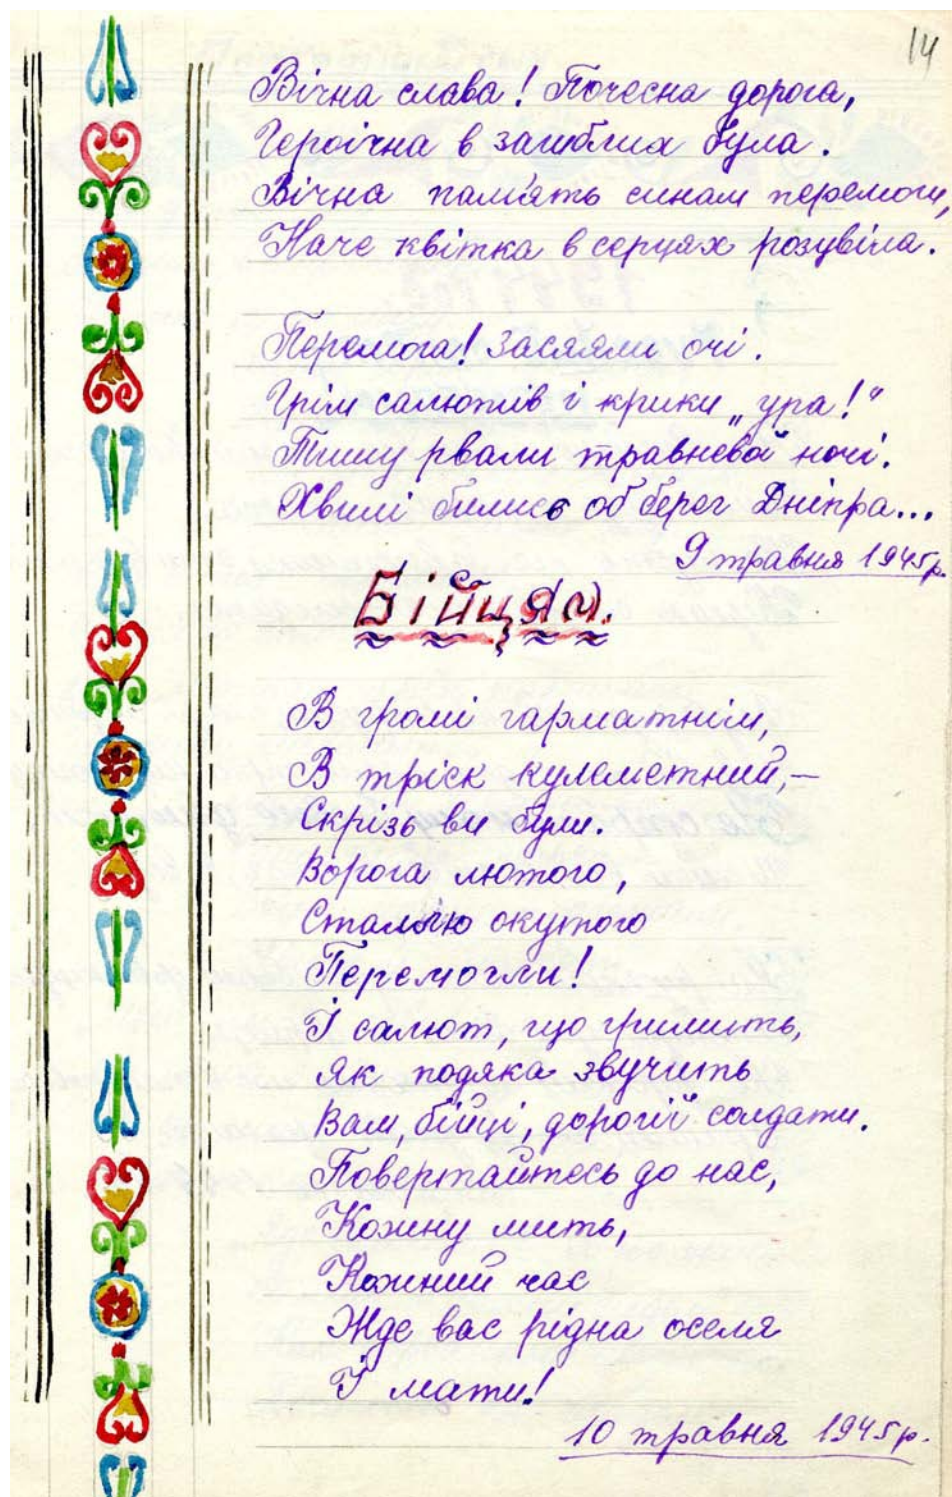 14
Вічна слава! Почесна дорога,
Героїчна в загиблих була.
Вічна пам'ять синам перемоги,
Наче квітка в серцях розцвіла.
Перемога! Засяяли очі.
Грім салютів і крики „ура!“
Тишу рвали травневої ночі.
Хвилі билися об берег Дніпра...
9 травня 1945р.
Бійцям.
В громі гарматнім,
В тріск кулеметний, –
Скрізь ви були.
Ворога лютого,
Сталлю окутого
Перемогли!
І салют, що гримить,
Як подяка звучить
Вам, бійці, дорогії солдати.
Повертайтесь до нас,
Кожну мить,
Кожний час
Жде вас рідна оселя
І мати!
10 травня 1945р.